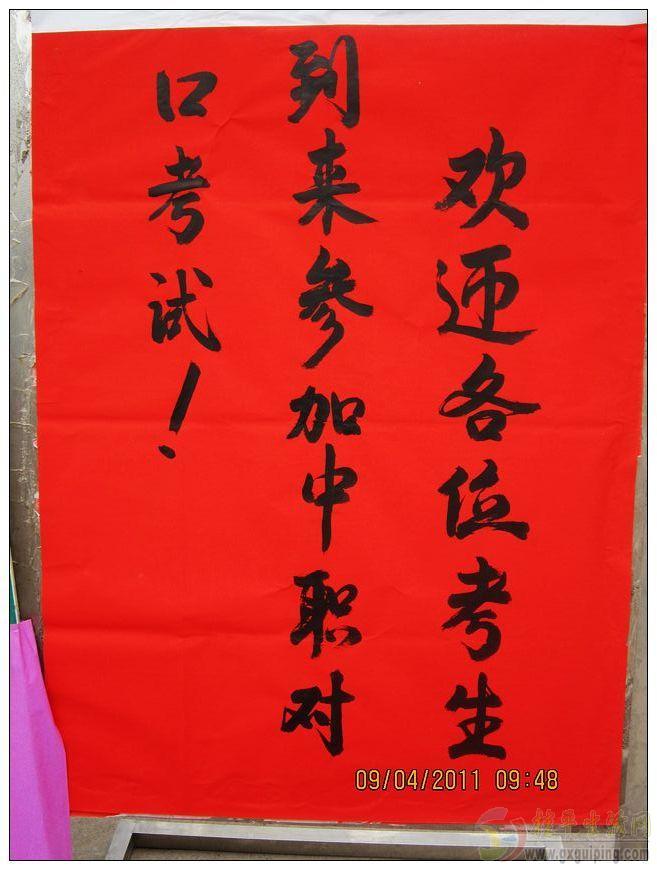 欢迎各位考生
到来参加中职对
口考试！
09/04/2011 09:48
www.gxguiping.com